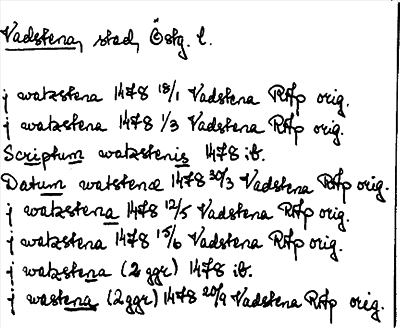 Vadstena, stad, Östg. l.
j watzstena 1478 18/1 Vadstena RAp orig.
j watzstena 1478 1/3 Vadstena RAp orig.
Scriptum watzstenis 1478 ib.
Datum watstene 1478 30/3 Vadstena RAp orig.
j watzstena 1478 12/5 Vadstena RAp orig.
j watzstena 1478 15/6 Vadstena RAp orig.
j watzstena (2 ggr) 1478 ib.
j wastena (2 ggr) 1478 20/9 Vadstena RAp orig.